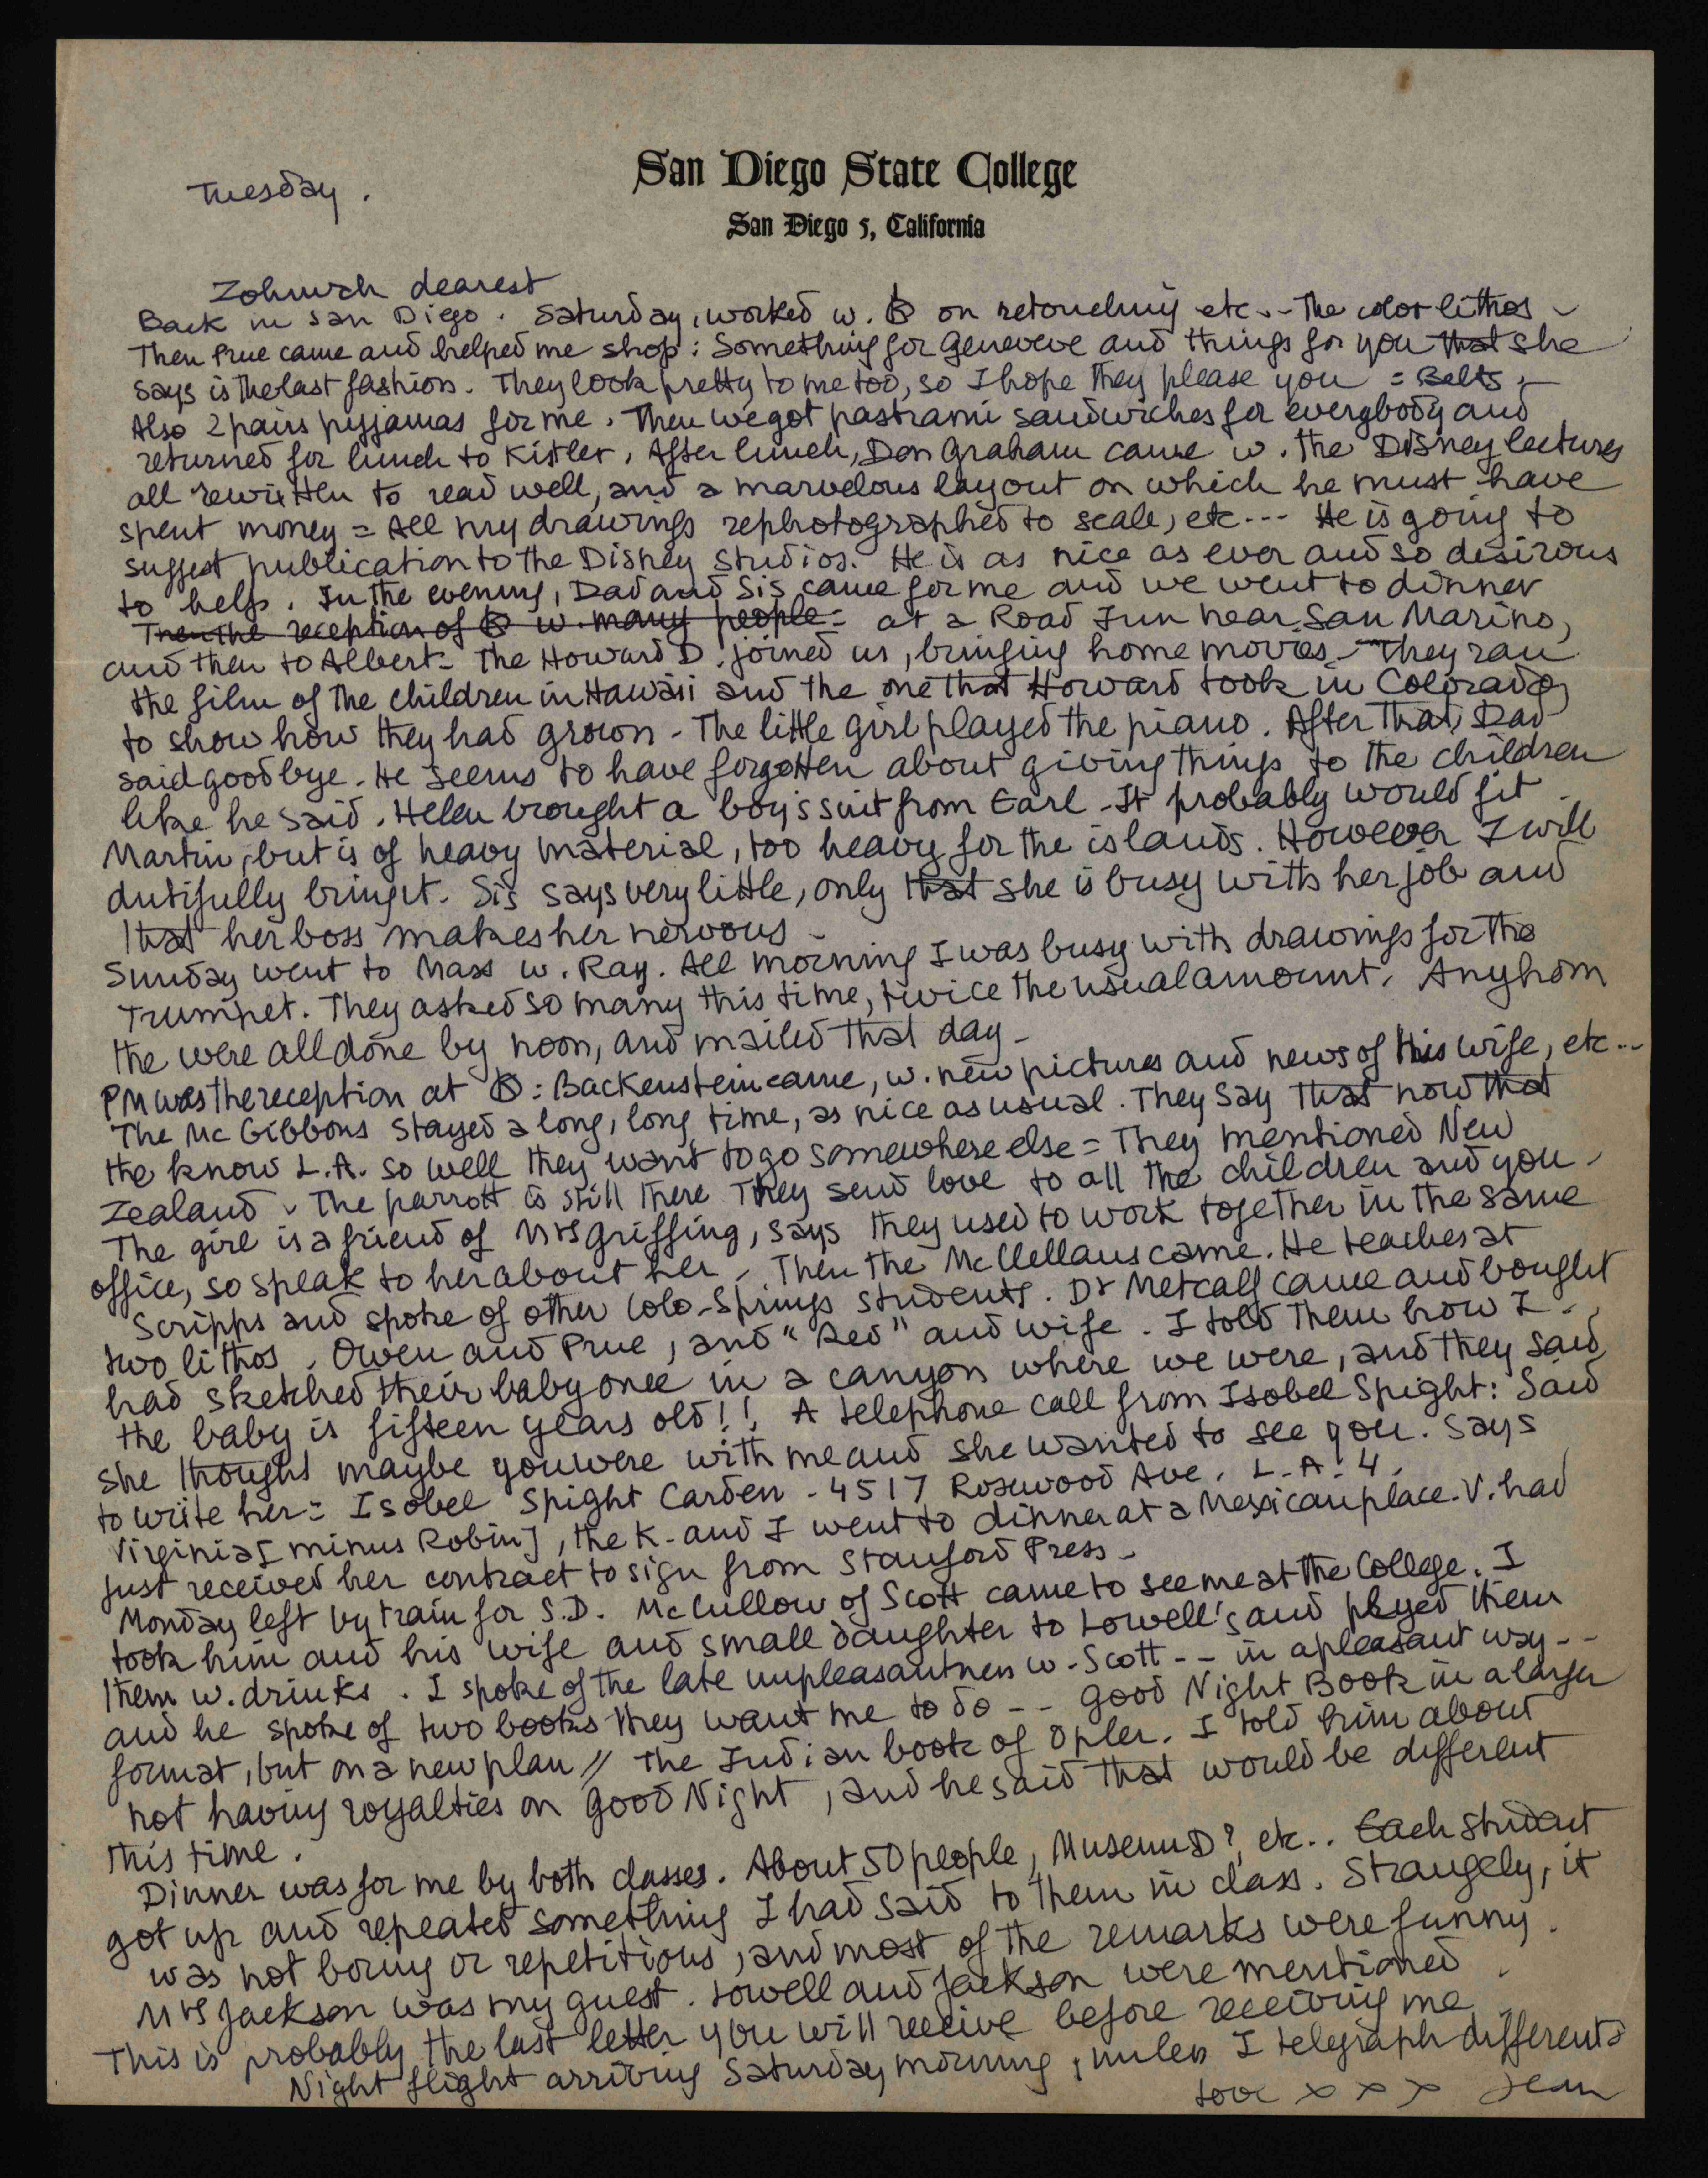 San Diego State College
San Diego 5, California
Tuesday.
Zohmah dearest
Back in San Diego. Saturday, worked w. K on retouching etc -- The color lithos -
Then Prue came and helped me shop: Something for Geneveve and things for you that she
says is the last fashion. They look pretty to me too, so I hope they please you = Belts -
Also 2 pairs pyjamas for me. Then we got pastrami sandwiches for everybody and
returned for lunch to Kistler. After lunch, Don Graham came w. the Disney lectures
all rewritten to read well, and a marvelous layout on which he must have
spent money = All my drawings rephotographed to scale, etc --- He is going to
suggest publication to the Disney Studios. He is as nice as ever and so desirous
to help. In the evening, Dad and Sis came for me and we went to dinner
Then the reception of K w. many people = at a Road Inn near San Marino,
and then to Albert - The Howard D. joined us, bringing home movies - They ran
the film of the children in Hawaii and the one that Howard took in Colorado,
to show how they had grown - The little girl played the piano. After that, Dad
said goodbye. He seems to have forgotten about giving things to the children
like he said. Helen brought a boy's suit from Earl - It probably would fit
Martin, but is of heavy material, too heavy for the islands. However I will
dutifully bring it. Sis says very little, only that she is busy with her job and
that her boss makes her nervous -
Sunday went to Mass w. Ray. All morning I was busy with drawings for the
Trumpet. They asked so many this time, twice the usual amount. Anyhom
the were all done by noon, and mailed that day -
PM was the reception at K: Backenstein came, w. new pictures and news of his wife, etc --
The McGibbons stayed a long, long time, as nice as usual. They say that now that
the know L.A. so well they want to go somewhere else = They mentioned New
Zealand. The parrott is still there They send love to all the children and you -
The girl is a friend of Mrs Griffing, says they used to work together in the same
office, so speak to her about her - Then the McClellans came. He teaches at
Scripps and spoke of other Colo-Springs students. Dr Metcalf came and bought
two lithos. Owen and Prue, and "Red" and wife. I told them how I
had sketched their baby once in a canyon where we were, and they said
the baby is fifteen years old!! A telephone call from Isobel Spight: Said
she thought maybe you were with me and she wanted to see you. Says
to write her = Isobel Spight Carden - 4517 Rosewood Ave. L.A. 4.
Virginia [minus Robin], the K- and I went to dinner at a Mexican place. V. had
just received her contract to sign from Stanford Press -
Monday left by train for S.D. McCullow of Scott came to see me at the College. I
took him and his wife and small daughter to Lowell's and plyed them
them w. drinks. I spoke of the late unpleasantness w. Scott -- in a pleasant way --
and he spoke of two books they want me to do -- Good Night Book in a larger
format, but on a new plan // The Indian book of Opler. I told him about
not having royalties on Good Night, and he said that would be different
this time.
Dinner was for me by both classes. About 50 people, Museum D?, etc.. Each student
got up and repeated something I had said to them in class. Strangely, it
was not boring or repetitious, and most of the remarks were funny.
Mrs Jackson was my guest. Lowell and Jackson were mentioned.
This is probably the last letter you will receive before receiving me.
Night flight arriving Saturday morning, unless I telegraph different
love x x x Jean